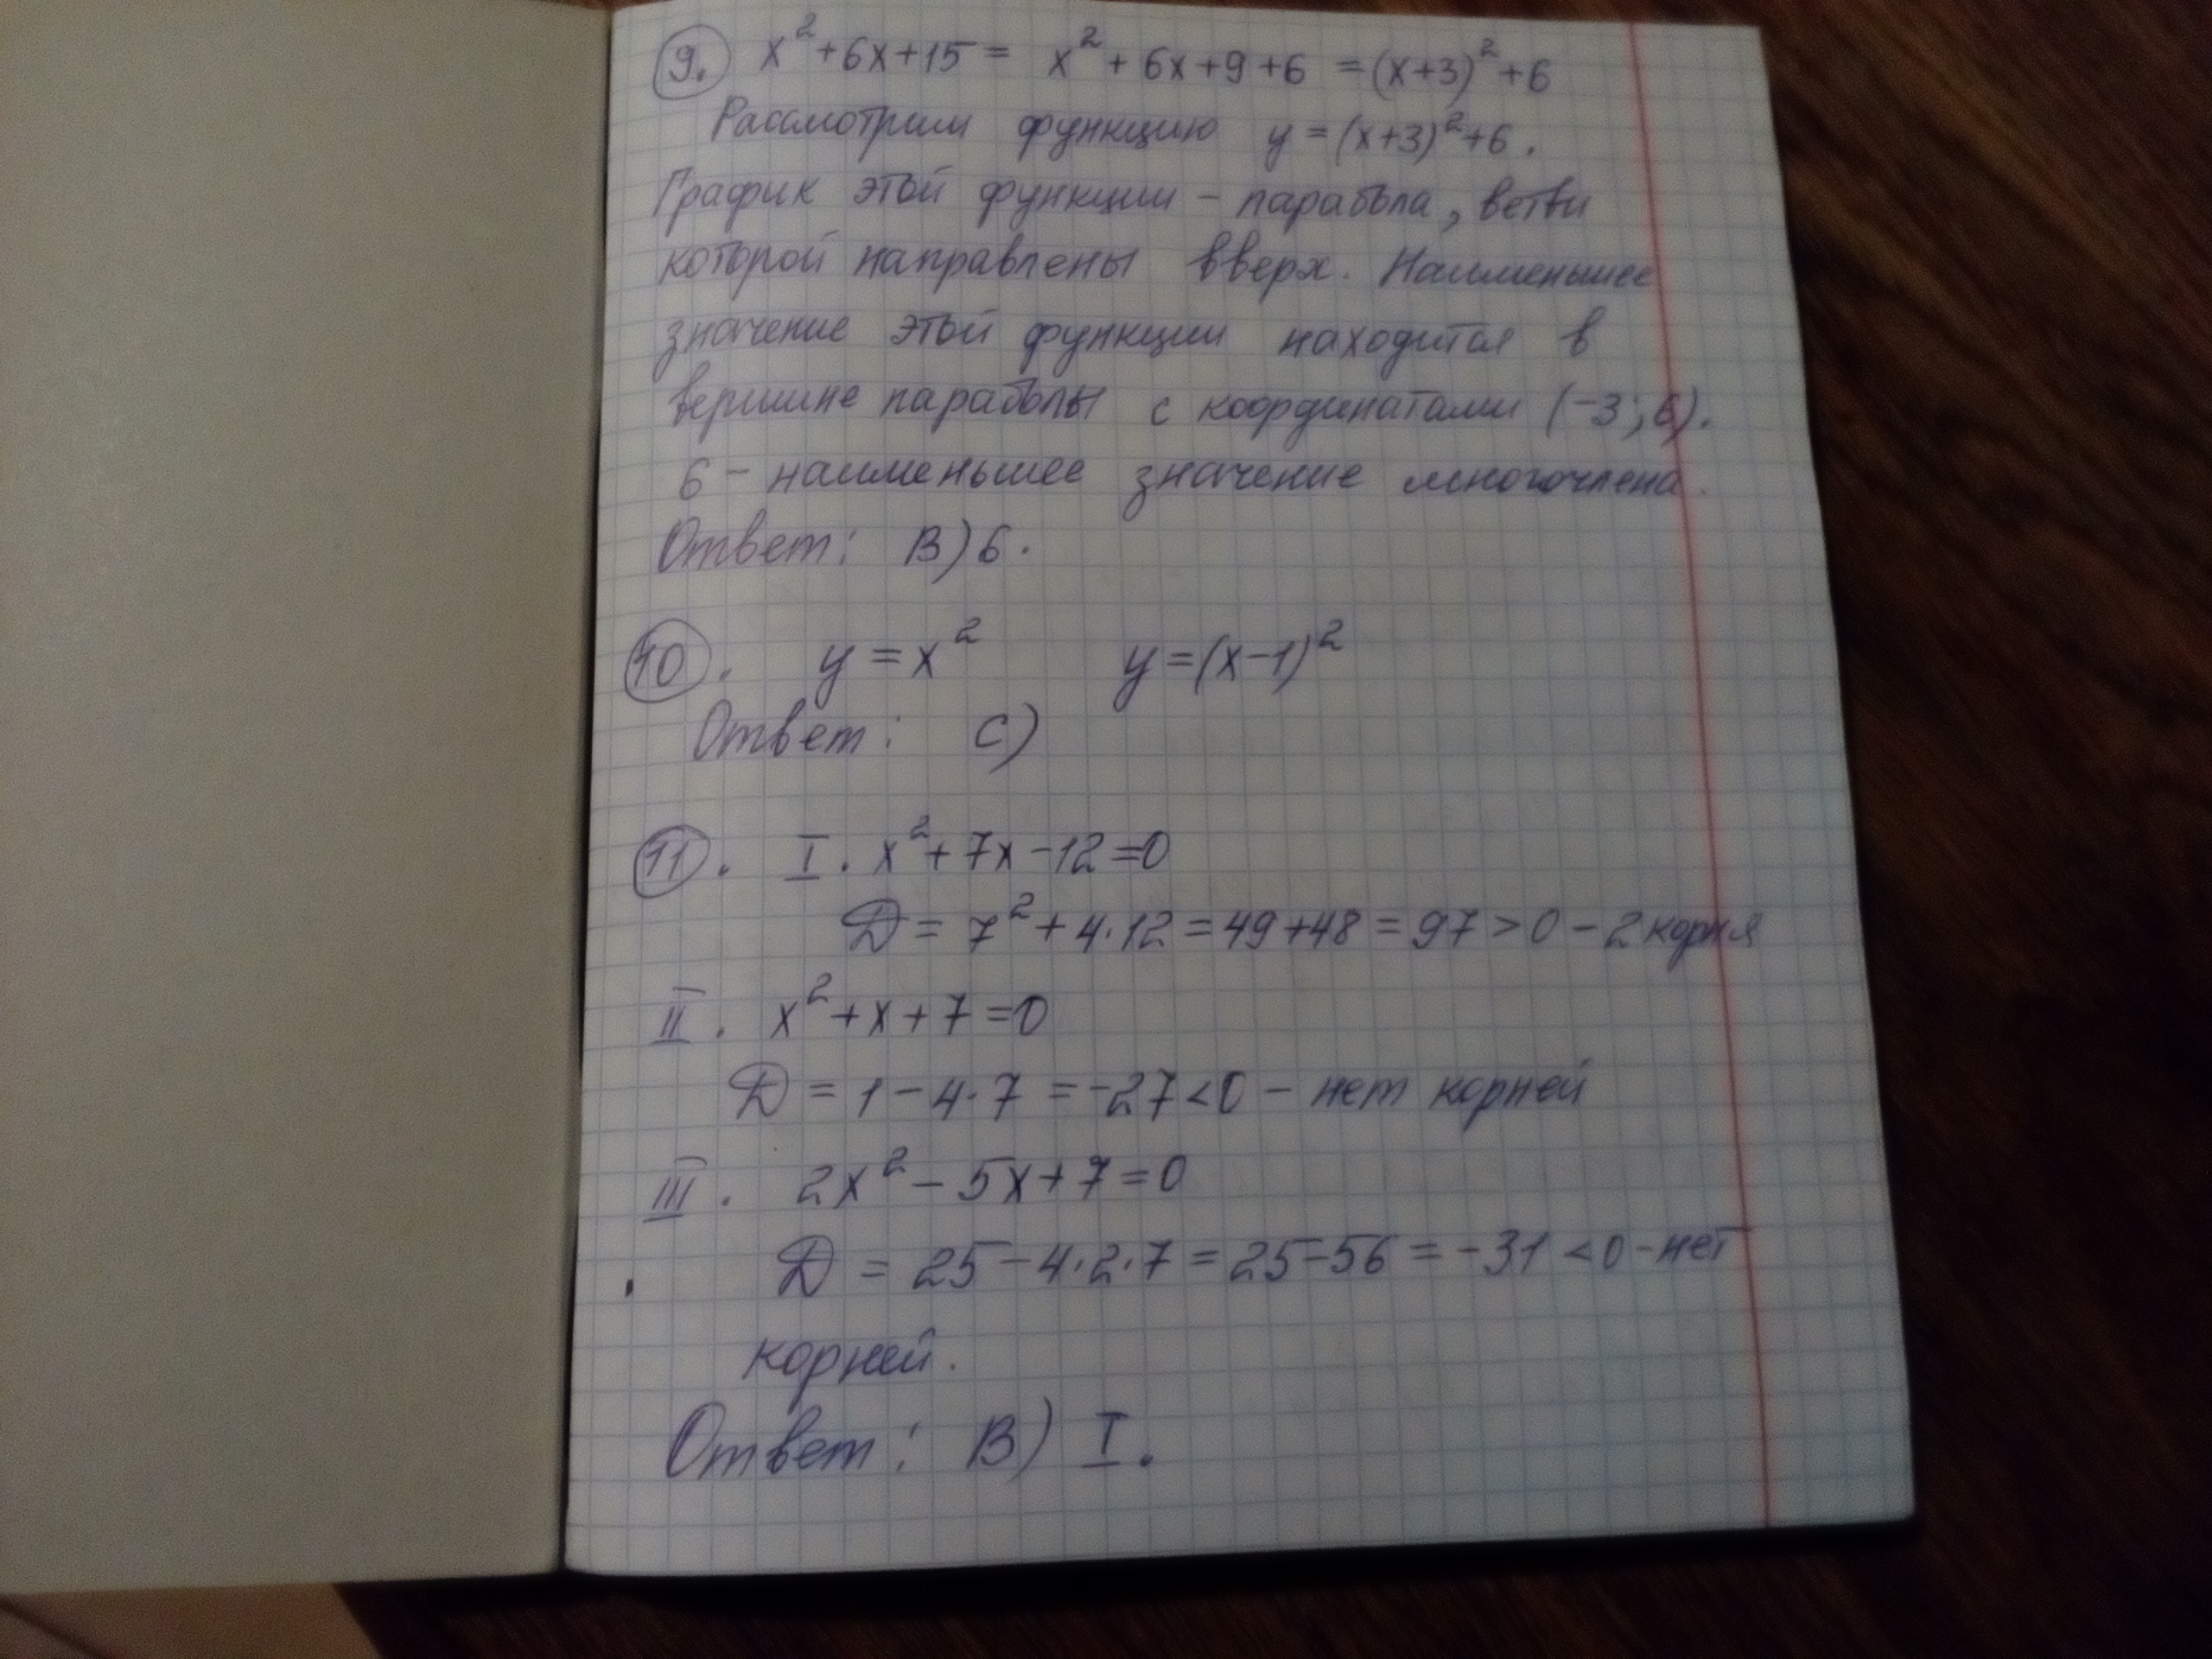 9. x²+6x+15 = x²+6x+9+6 =(x+3)²+6
Рассмотрим функцию y=(x+3)²+6.
График этой функции - парабола, ветви
которой направлены вверх. Наименьшее
значение этой функции находится в
вершине параболы с координатами (-3;6).
6 - наименьшее значение многочлена.
Ответ: В) 6.
10. y=x² y=(x-1)²
Ответ: С)
11. I. x²+7x-12=0
D = 7²+4·12=49+48=97>0 - 2 корня
II. x²+x+7=0
D = 1-4·7 =-27<0 - нет корней
III. 2x²-5x+7=0
D = 25-4·2·7=25-56=-31<0-нет
корней.
Ответ: В) I.